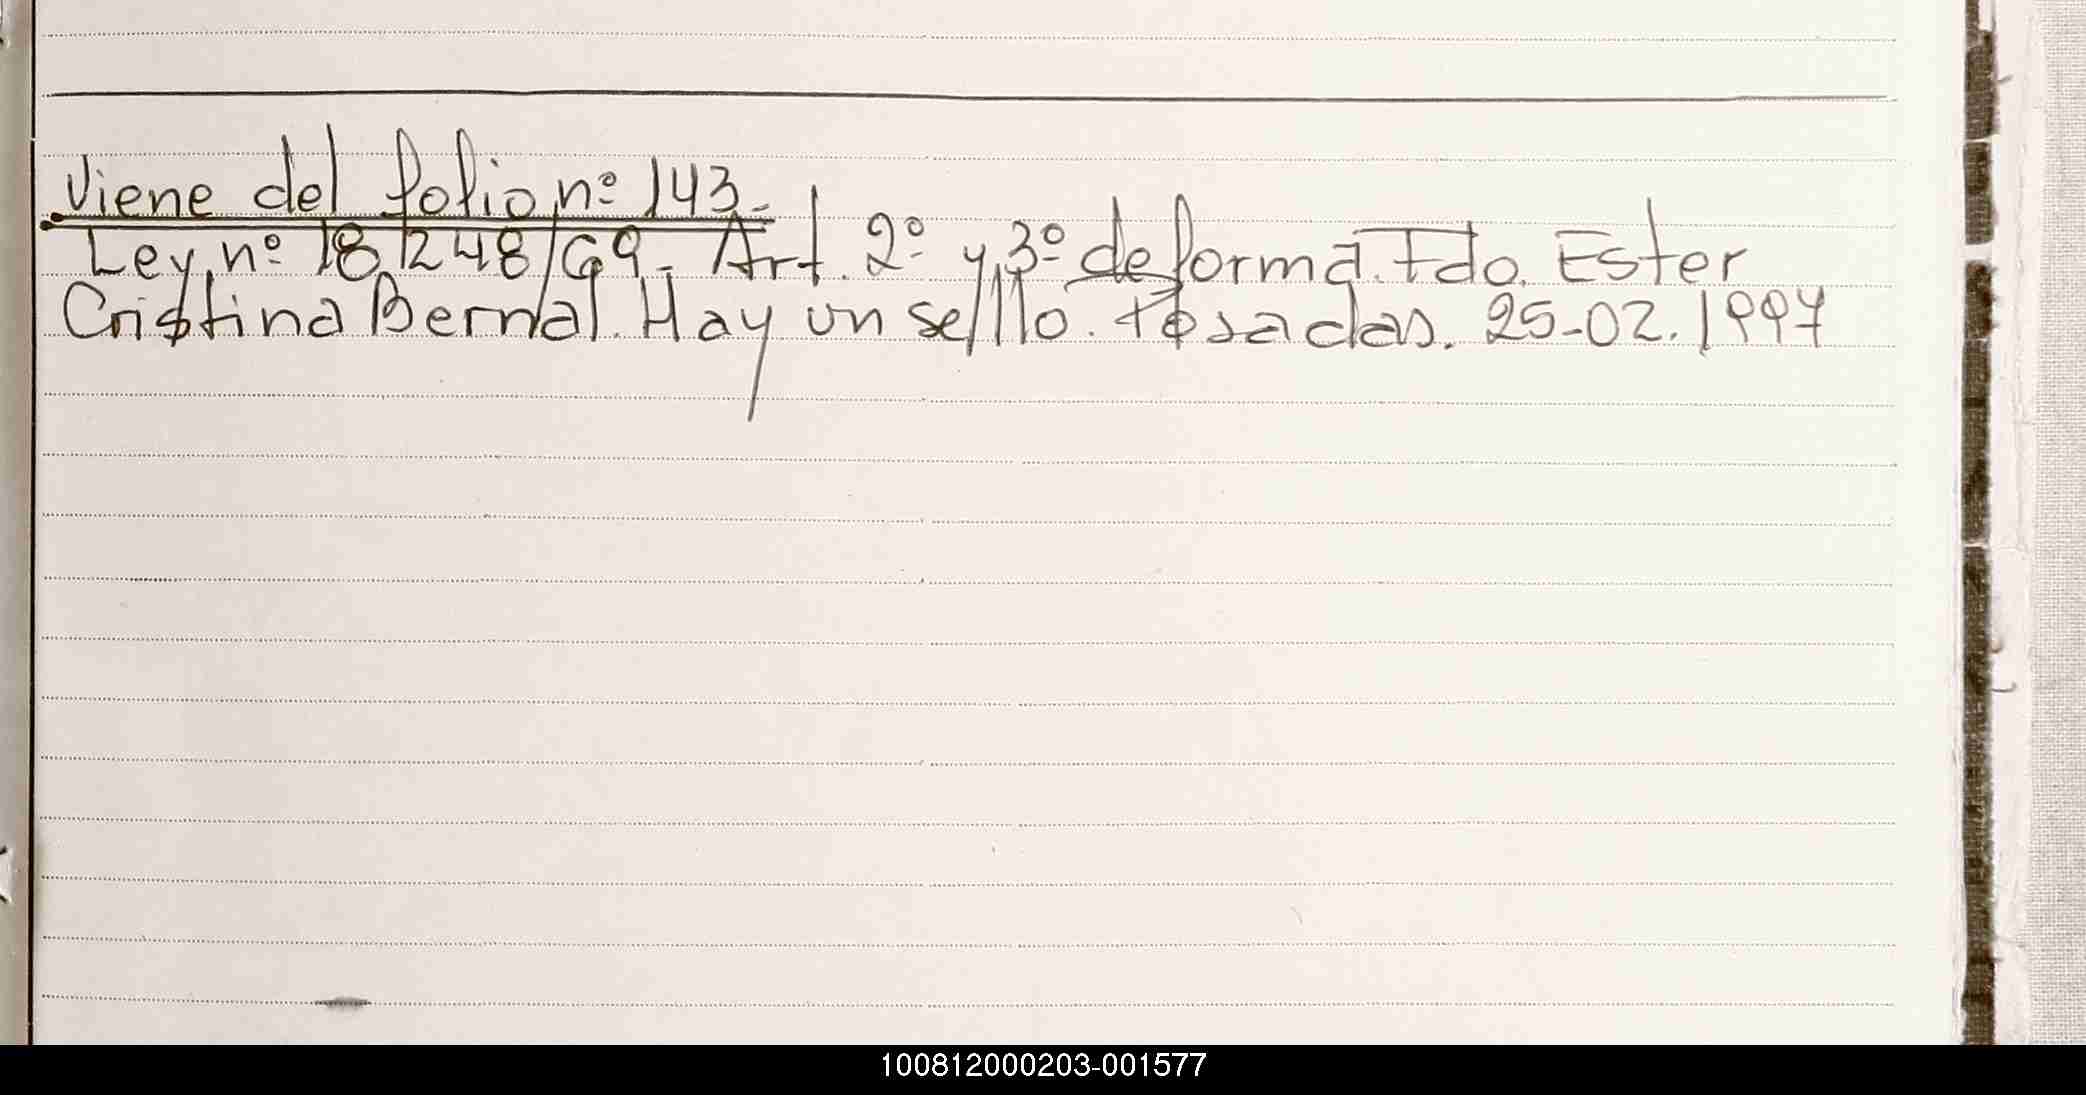 Viene del folio nº 143.
Ley nº 18.248/69. Art. 2º y 3º de forma. Fdo. Ester
Cristina Bernal. Hay un sello. Posadas. 25-02.1997
100812000203-001577